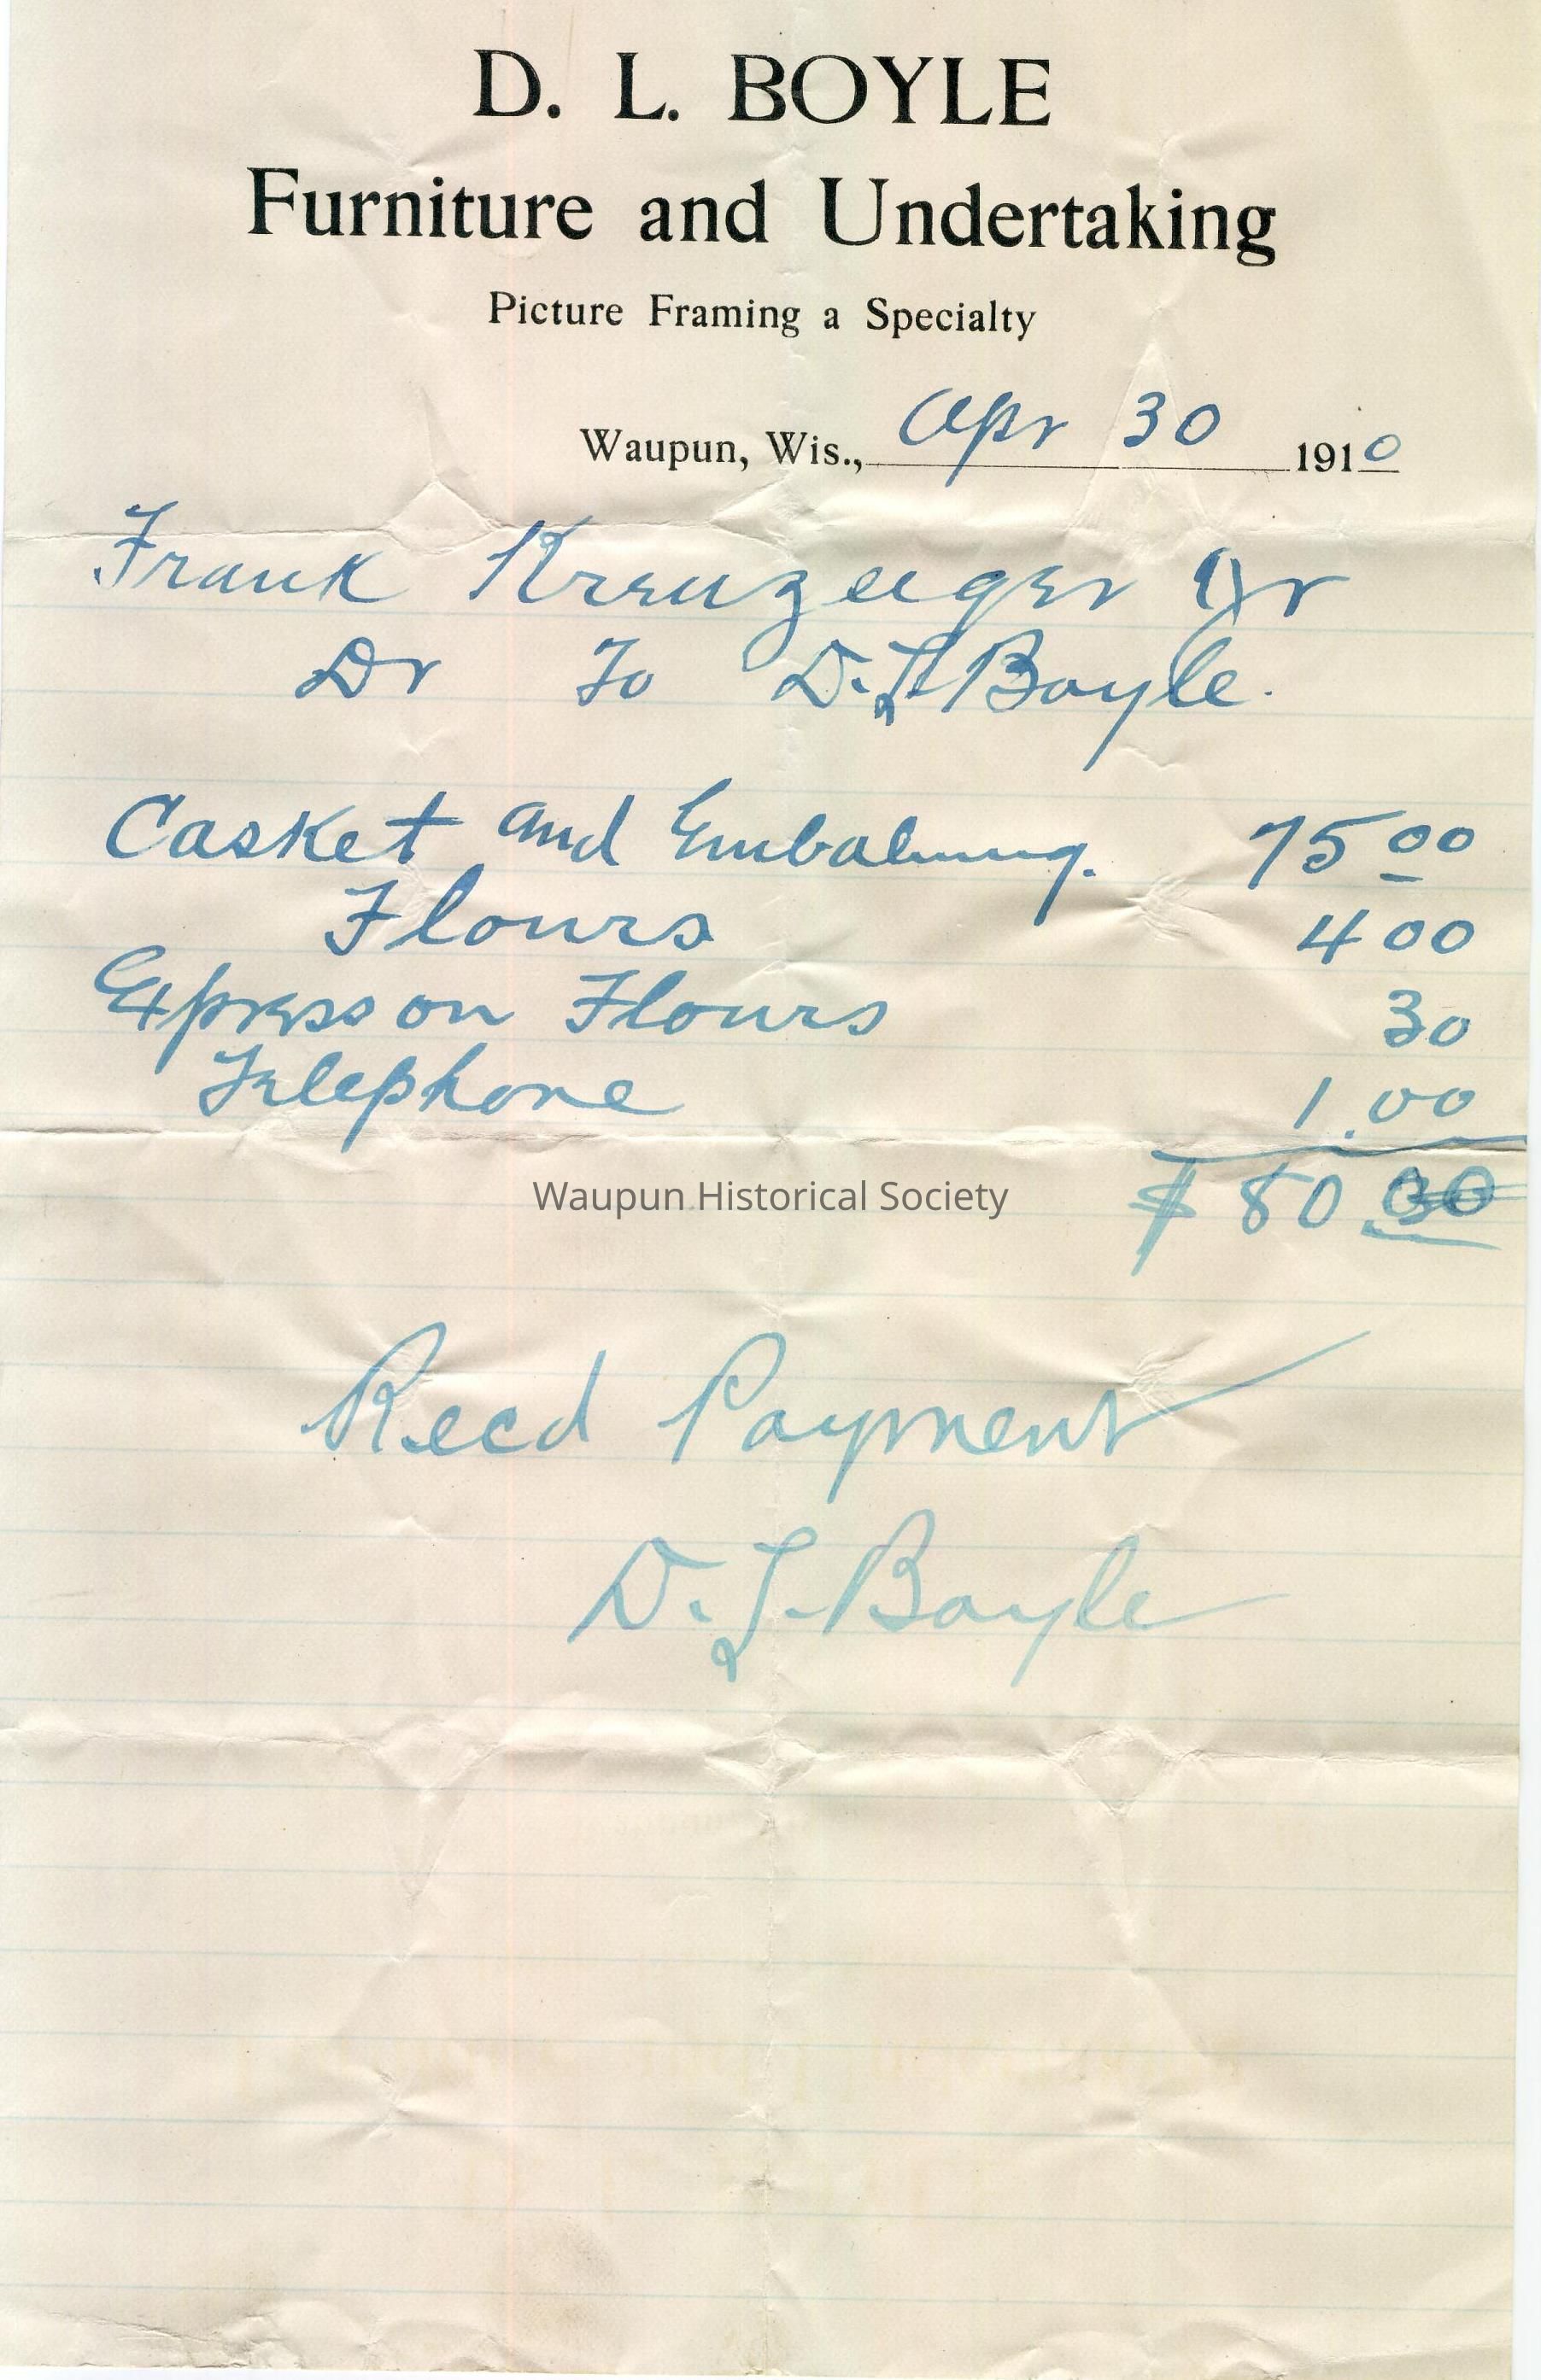 D. L. BOYLE
Furniture and Undertaking
Picture Framing a Specialty
Waupun, Wis., Apr 30 1910
Frank Kreuzeeger Jr
Dr To D. L. Boyle.
Casket and Embalming. 75 00
Flours 4 00
Express on Flours 30
Telephone 1.00
$ 80.30
Waupun Historical Society
Recd Payment
D. L. Boyle